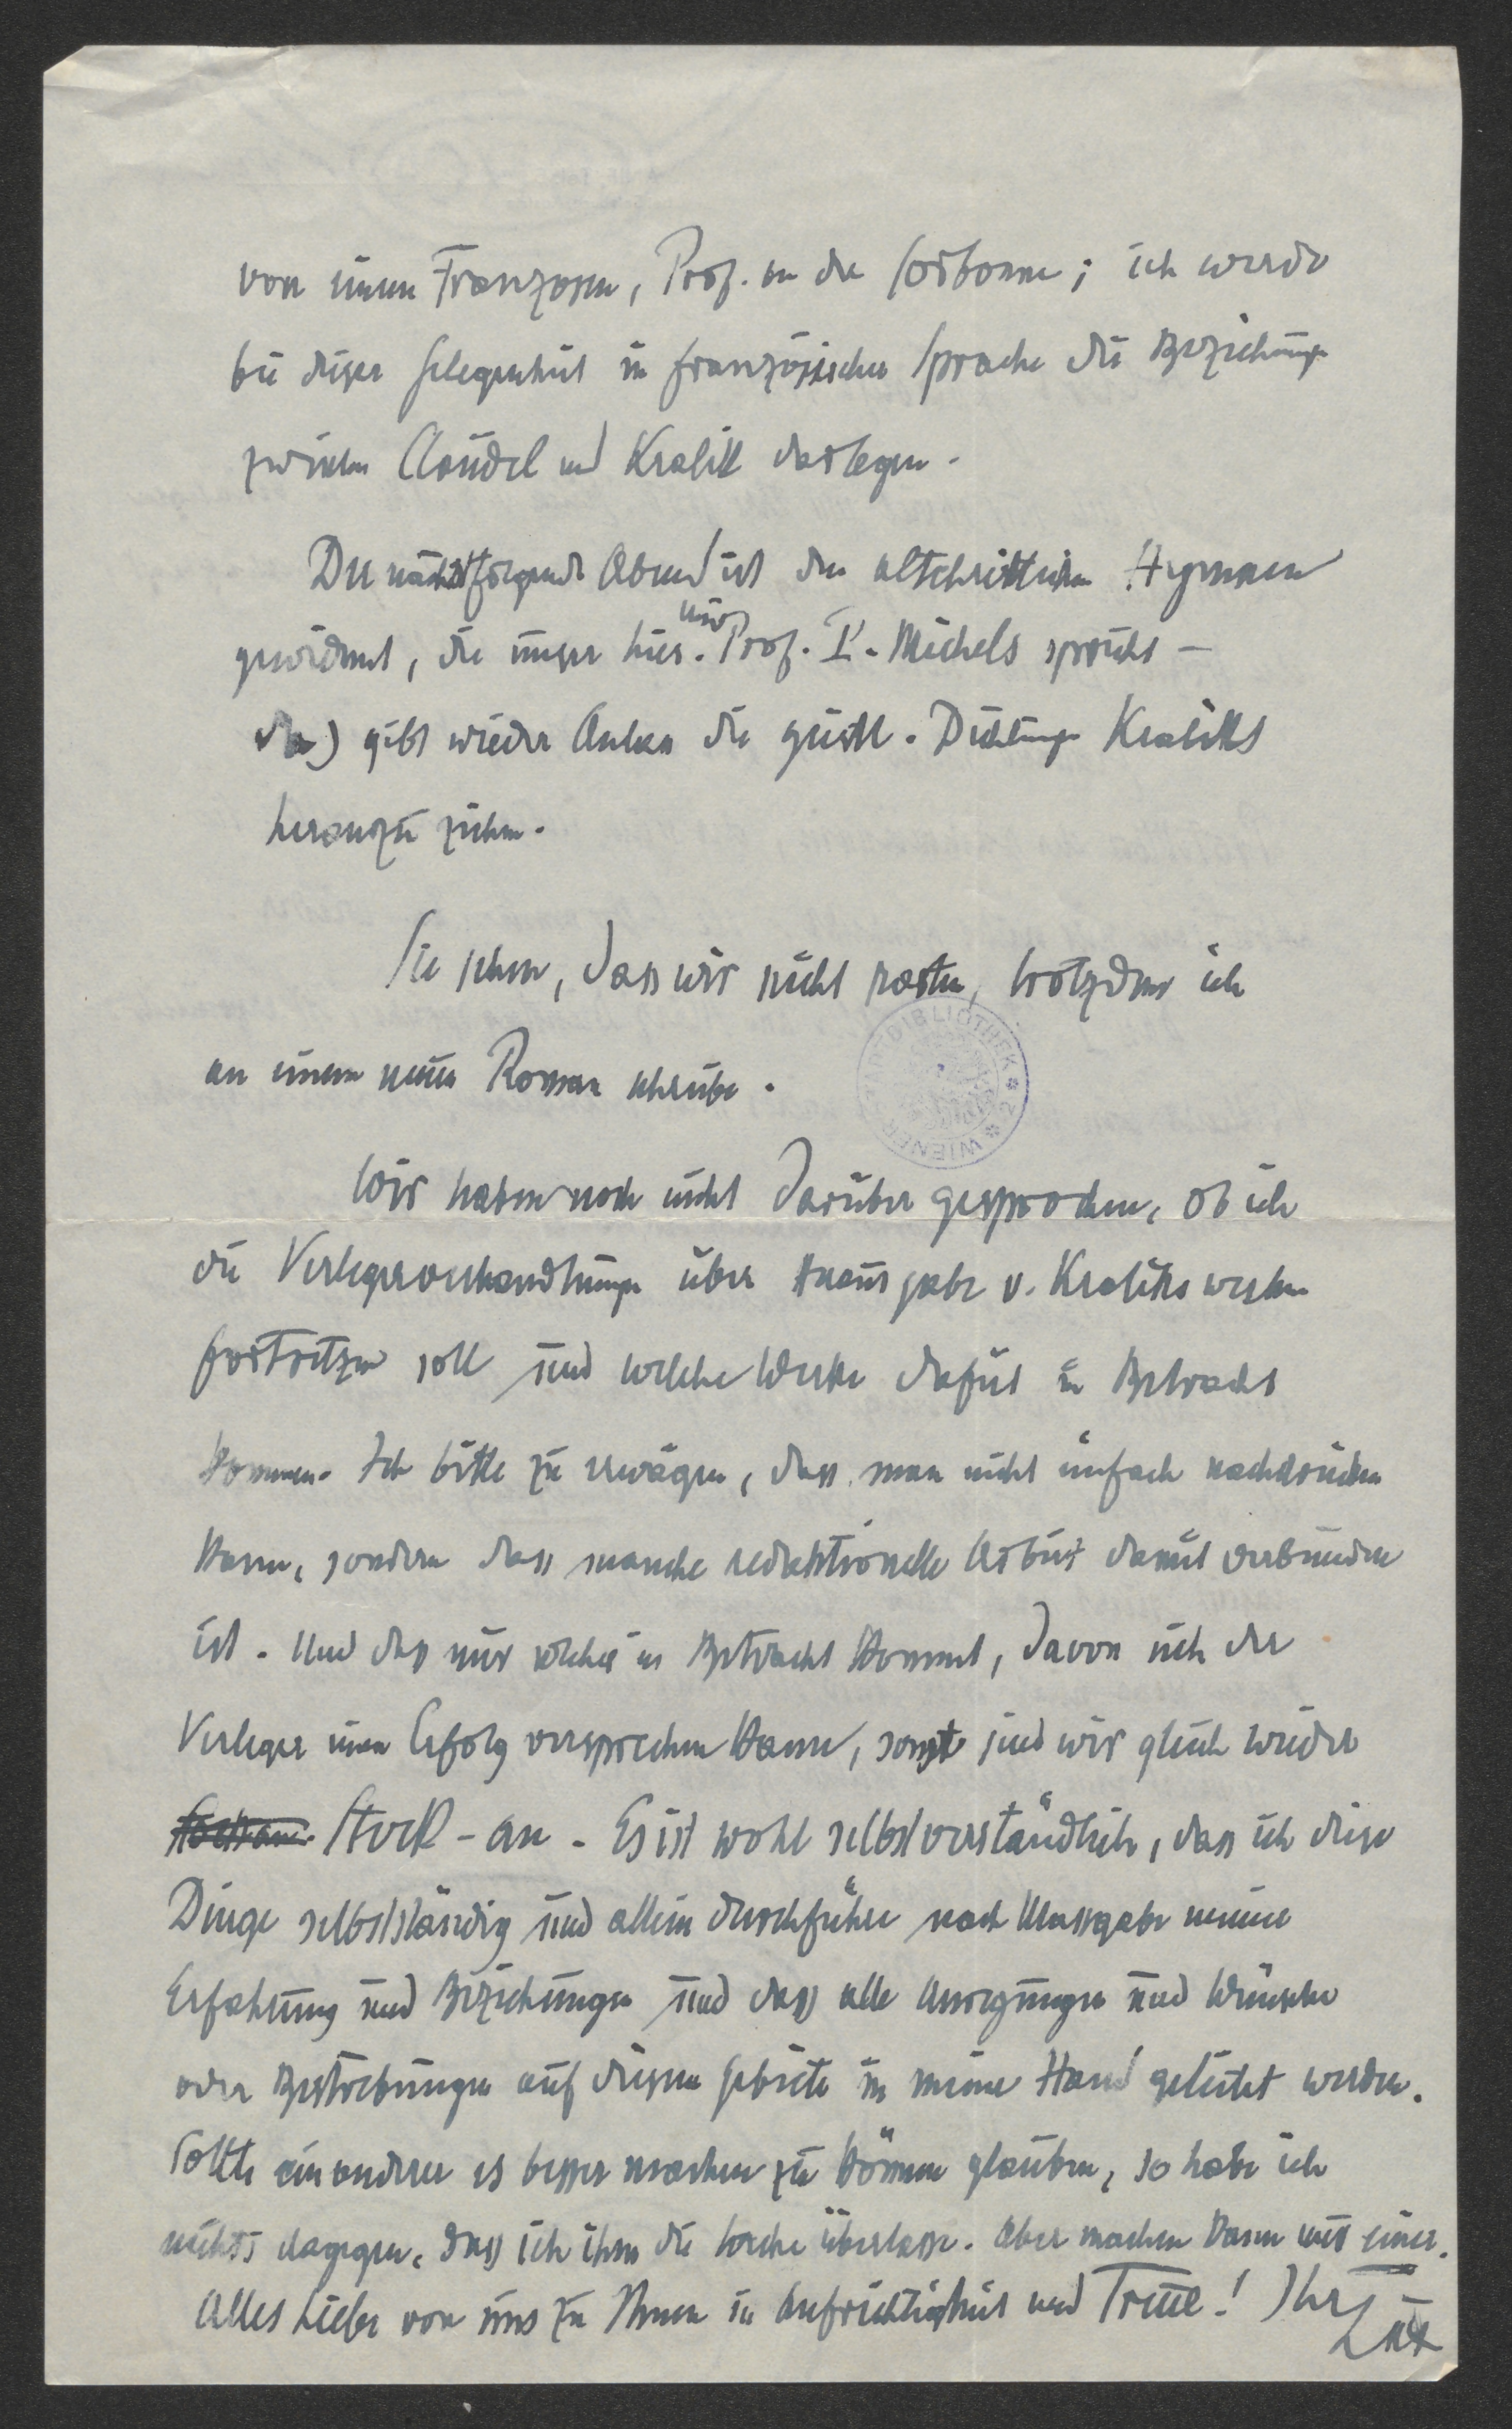 von einem Franzosen, Prof. an der Sorbonne; ich werde
bei dieser Gelegenheit in französischer Sprache die Beziehungen
zwischen Claudel und Kralik darlegen.
Der nächstfolgende Abend ist den altchristlichen Hymnen
gewidmet, die unser hies. Univ. Prof. Michels spricht -
das gibt wieder Anlass die geistl. Dichtungen Kraliks
heranzuziehen.
Sie sehen, dass wir nicht rasten, trotzdem ich
an einem neuen Roman schreibe.
WIENER STADTBIBLIOTHEK
Wir haben noch nicht darüber gesprochen, ob ich
die Verlegerverhandlungen über Herausgabe v. Kraliks Werken
fortsetzen soll und welche Werke dafür in Betracht
kommen. Ich bitte zu erwägen, dass man nicht einfach nachdrucken
kann, sondern dass manche redaktionelle Arbeit damit verbunden
ist. Und dass nur solches in Betracht kommt, davon sich der
Verleger einen Erfolg versprechen kann, sonst sind wir gleich wieder
Stock-an. Es ist wohl selbstverständlich, dass ich diese
Dinge selbstständig und allein durchführe nach Massgabe meiner
Erfahrung und Beziehungen und dass alle Anregungen und Wünsche
oder Bestrebungen auf diesem Gebiete in meine Hand geleitet werden.
Sollte ein anderer es besser machen zu können glauben, so habe ich
nichts dagegen, dass ich ihm die Sache überlasse. Aber machen kann nur einer.
Alles Liebe von uns zu Ihnen in Aufrichtigkeit und Treue! Ihr
Lux